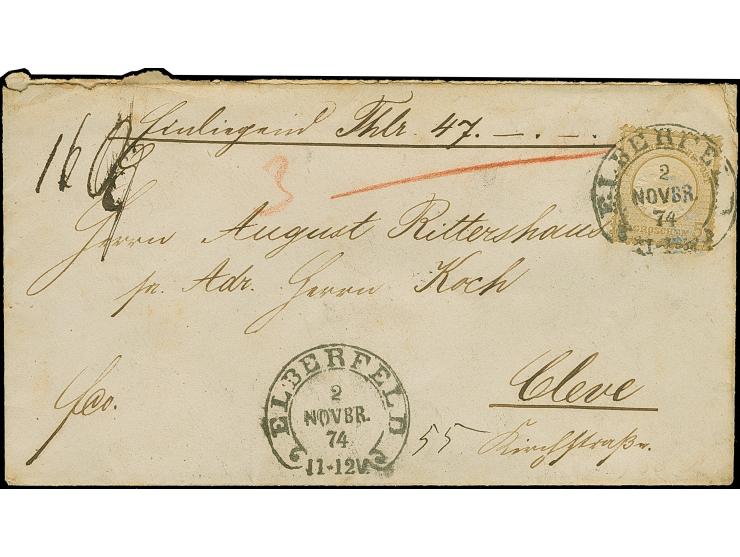 Einliegend Thlr. 47. — . — .
16
3
ELBERFELD
2
NOVBR.
74
11-12V.
GROSCHEN 5
Herrn August Rittershaus
pr. Adr. Herrn Koch
Cleve
fco.
ELBERFELD
2
NOVBR.
74
11-12V.
55 Kirchstraße.